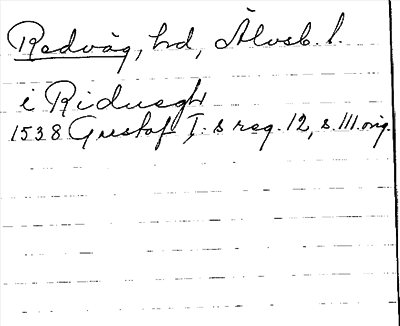 Redväg, hd, Älvsb. l.
i Ridusgh
1538 Gustaf I. s reg. 12, s. 111 orig.